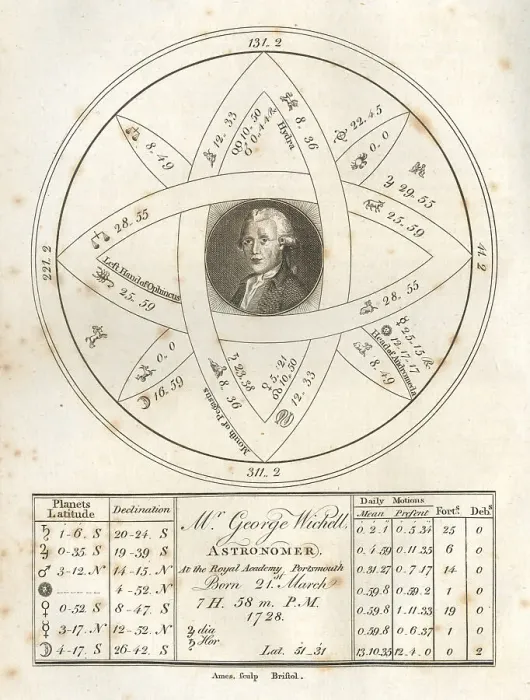 131. 2
12. 33
10. 50
8. 36
Hydra
22. 45
0. 0
♃ 29. 55
25. 59
8. 49
28. 55
221. 2
41. 2
Left Hand of Ophiucus
25. 59
28. 55
0. 0
☽ 16. 59
♄ 23. 38
8. 36
Mouth of Pegasus
♀ 5. 21
10. 50
12. 33
☿ 25. 15 ℞
12. 17. 17
Head of Andromeda
8. 49
311. 2
Planets Latitude | Declination | Daily Motions | Mean | Present | Forts. | Debs.
♄ 1-6. S | 20-24. S | 0. 2. 1 | 0. 5. 34 | 25 | 0
♃ 0-35. S | 19-39 S | 0. 4. 59 | 0. 11. 35 | 6 | 0
♂ 3-12. N | 14-15. N | 0. 31. 27 | 0. 7. 17 | 14 | 0
4-52. N | 0. 59. 8 | 0. 59. 2 | 1 | 0
♀ 0-52. S | 8-47. S | 0. 59. 8 | 1. 11. 33 | 19 | 0
☿ 3-17. N | 12-52. N | 0. 59. 8 | 0. 6. 37 | 1 | 0
☽ 4-17. S | 26-42. S | 13. 10. 35 | 12. 4. 0 | 0 | 2
Mr. George Wichell,
ASTRONOMER,
At the Royal Academy, Portsmouth
Born 21st. March
7 H. 58 m. P.M.
1728.
♃ dia
♄ Hor
Lat. 51-31
Ames, sculp Bristol.